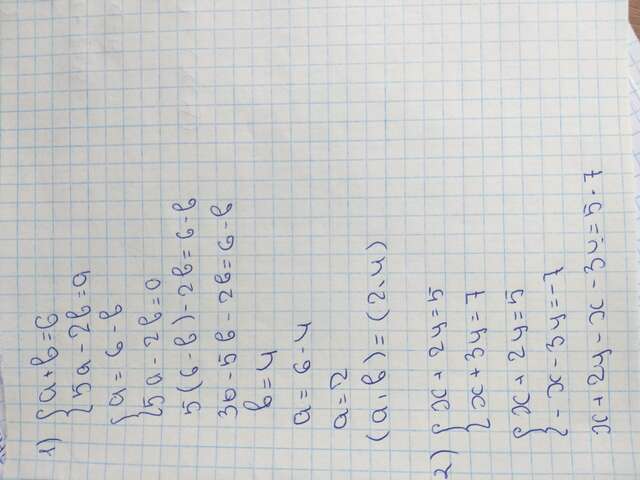 1) { a + b = 6
5a - 2b = a
{ a = 6 - b
5a - 2b = a
5(6-b) - 2b = 6 - b
30 - 5b - 2b = 6 - b
b = 4
a = 6 - 4
a = 2
(a, b) = (2, 4)
2) { x + 2y = 5
x + 3y = 7
{ x + 2y = 5
- x - 3y = -7
x + 2y - x - 3y = 5 - 7